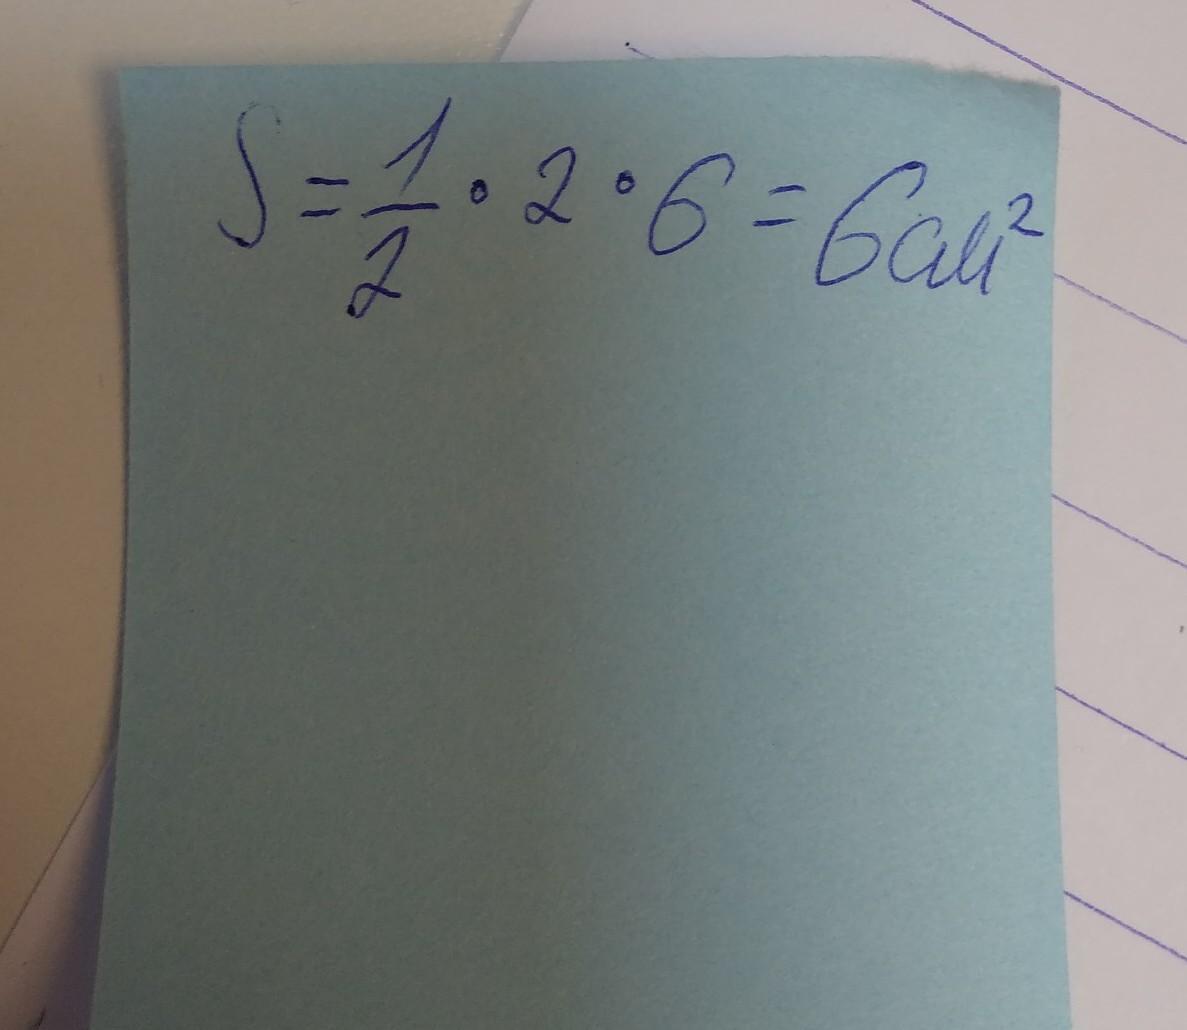 S = 1/2 · 2 · 6 = 6 см²